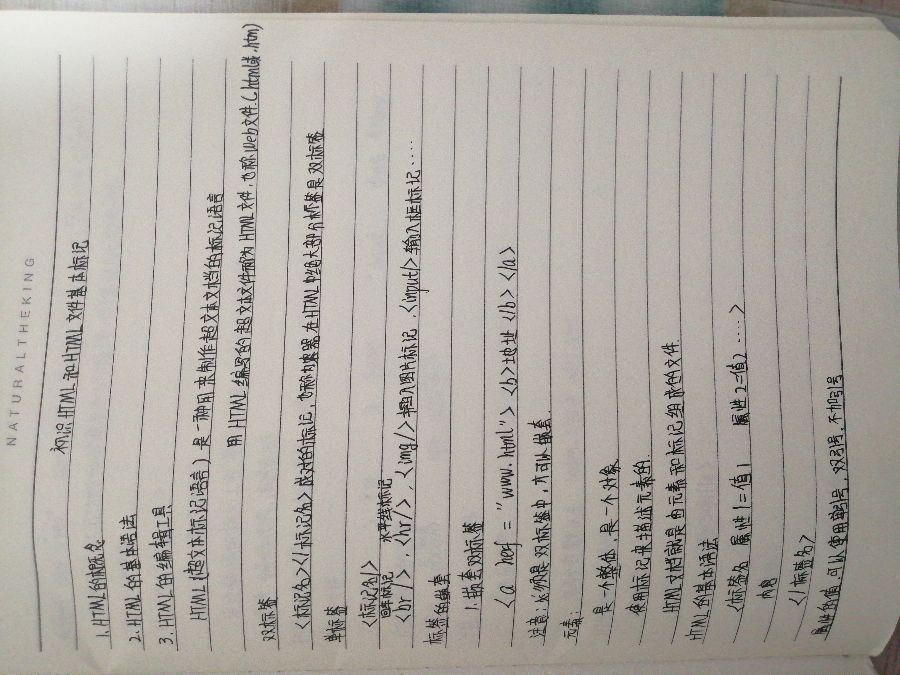 NATURALTHEKING
初识HTML和HTML文件基本标记
1. HTML的概念
2. HTML的基本语法
3. HTML的编辑工具
HTML(超文本标记语言)是一种用来制作超文本文档的标记语言
用HTML编写的超文本文件称为HTML文件,也称Web文件.(.html或.htm)
双标签
<标记名></标记名>成对的标记,也称为容器.在HTML中绝大部分标签是双标签
单标签
<标记名/>
回车标记 水平线标记
<br/>、<hr/>、<img/>插入图片标记、<input/>输入框标记.....
标签的嵌套
1.嵌套双标签
<a herf = "www.html"> <b>地址</b> </a>
注意:必须是双标签中,方可以嵌套.
元素:
是一个整体,是一个对象
使用标记来描述元素的.
HTML文档就是由元素和标记组成的文件.
HTML的基本语法
<标签名 属性1=值1 属性2=值2 ....>
内容
</标签名>
属性的值,可以使用单引号,双引号,不加引号